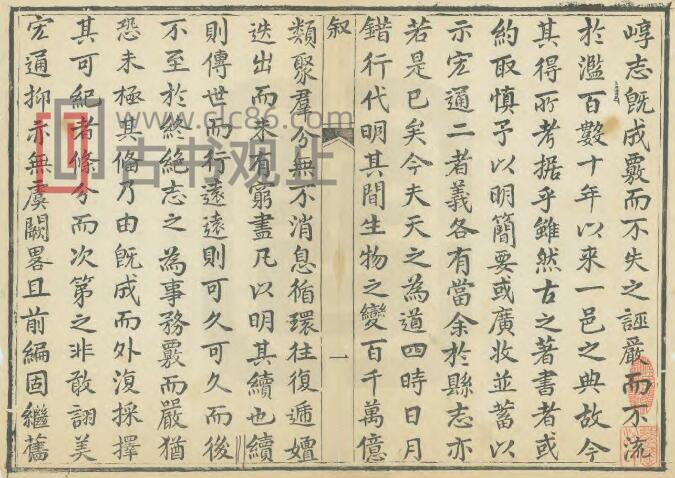 崞志既成覈而不失之誣嚴而不流
於濫百數十年以來一邑之典故今
其得所考据乎雖然古之著書者或
約取慎予以明簡要或廣收並蓄以
示宏通二者義各有當余於縣志亦
若是已矣今夫天之為道四時日月
錯行代明其間生物之變百千萬億
叙
一
類聚羣分無不消息循環往復遞嬗
迭出而未有窮盡凡以明其續也續
則傳世而行遠遠則可久可久而後
不至於終絶志之為事務覈而嚴猶
恐未極其偹乃由既成而外復採擇
其可紀者條分而次第之非敢詡美
宏通抑亦無虞闕畧且前編固繼舊
www.gjc86.com
古书观止